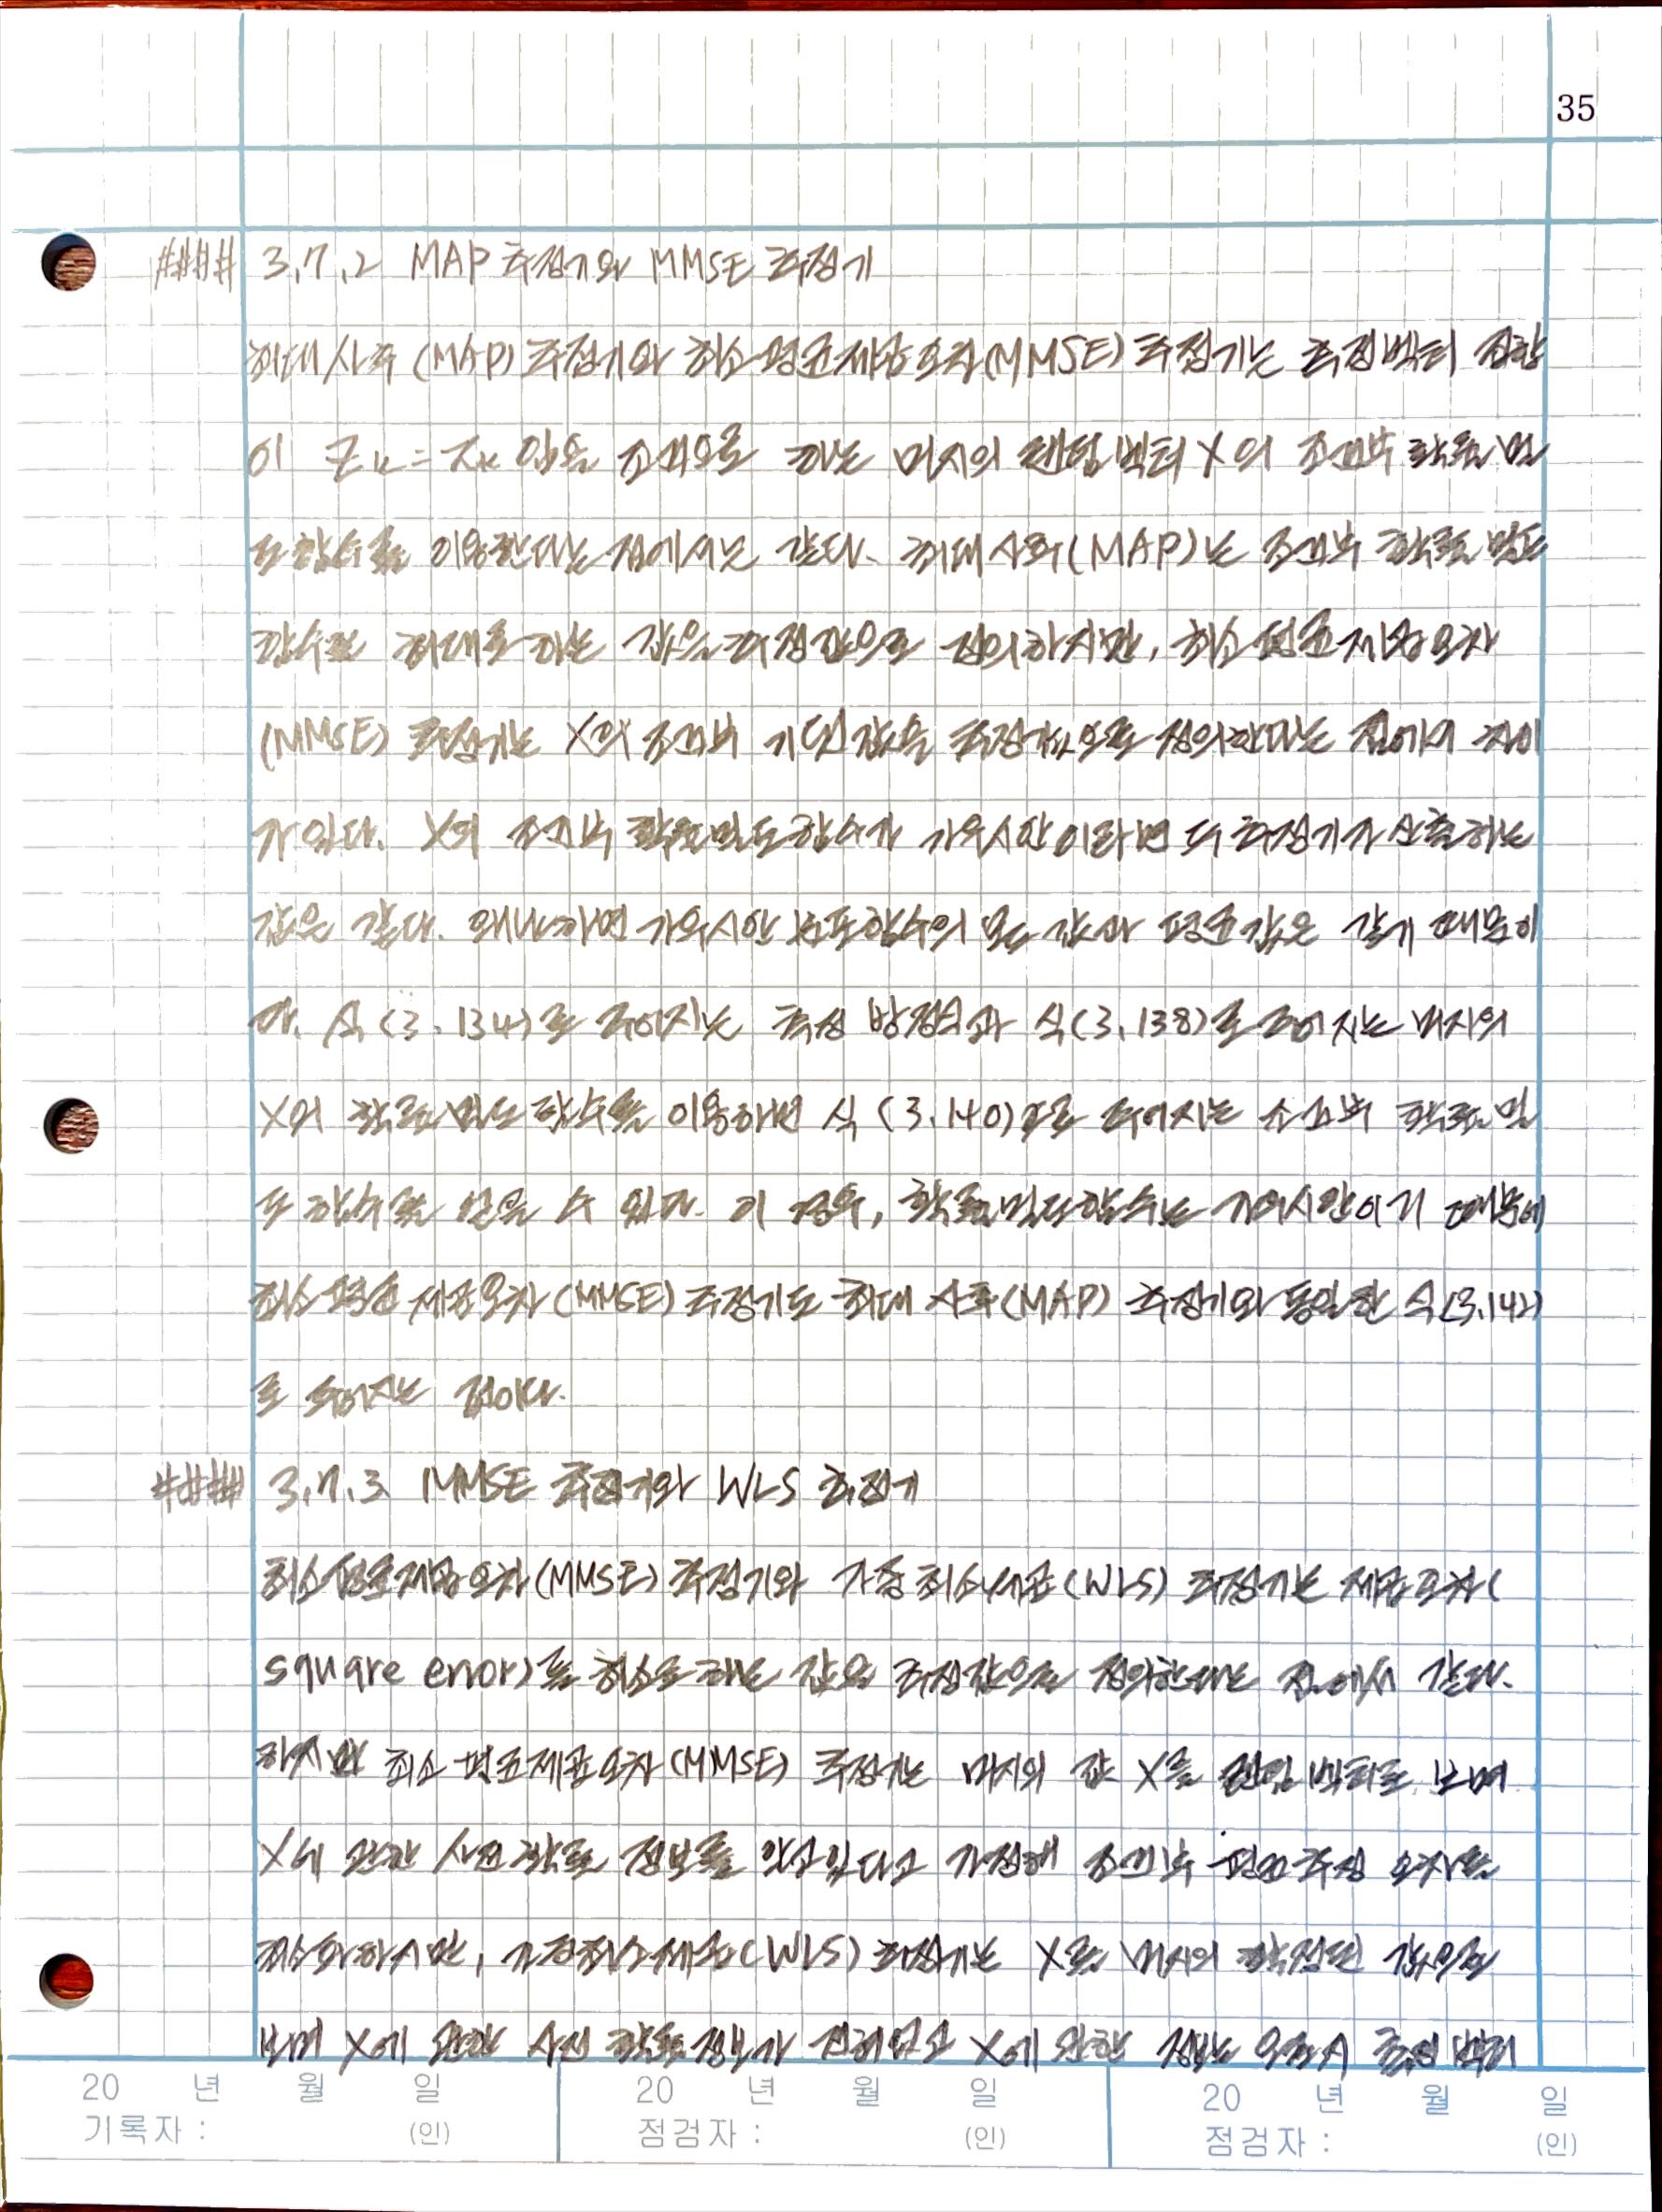 35
#### 3.7.2 MAP 추정기와 MMSE 추정기
최대사후 (MAP) 추정기와 최소평균제곱오차(MMSE) 추정기는 측정벡터 집합
이 Zk = zk 임을 조건으로 하는 미지의 랜덤벡터 X의 조건부 확률밀
도함수를 이용한다는 점에서는 같다. 최대사후(MAP)는 조건부 확률밀도
함수를 최대로 하는 값을 추정값으로 정의하지만, 최소평균제곱오차
(MMSE) 추정기는 X의 조건부 기댓값을 추정값으로 정의한다는 점에서 차이
가 있다. X의 조건부 확률밀도함수가 가우시안이라면 두 추정기가 산출하는
값은 같다. 왜냐하면 가우시안 분포함수의 모드 값과 평균값은 같기 때문이
다. 식 (3.134)로 주어지는 측정 방정식과 식(3.138)로 주어지는 미지의
X의 확률밀도함수를 이용하면 식 (3.140)으로 주어지는 조건부 확률밀
도함수를 얻을 수 있다. 이 경우, 확률밀도함수는 가우시안이기 때문에
최소평균제곱오차(MMSE) 추정기도 최대사후(MAP) 추정기와 동일한 식(3.142)
로 주어지는 것이다.
#### 3.7.3 MMSE 추정기와 WLS 추정기
최소평균제곱오차(MMSE) 추정기와 가중최소제곱(WLS) 추정기는 제곱오차(
square error)를 최소로 하는 값을 추정값으로 정의한다는 점에서 같다.
하지만 최소평균제곱오차(MMSE) 추정기는 미지의 값 X를 랜덤벡터로 보며
X에 관한 사전 확률 정보를 갖고있다고 가정해 조건부 평균추정 오차를
최소화하지만, 가중최소제곱(WLS) 추정기는 X를 미지의 확정된 값으로
보며 X에 관한 사전 확률정보가 전혀없고 X에 관한 정보는 오로지 측정 벡터
20 년 월 일 20 년 월 일 20 년 월 일
기록자 : (인) 점검자 : (인) 점검자 : (인)